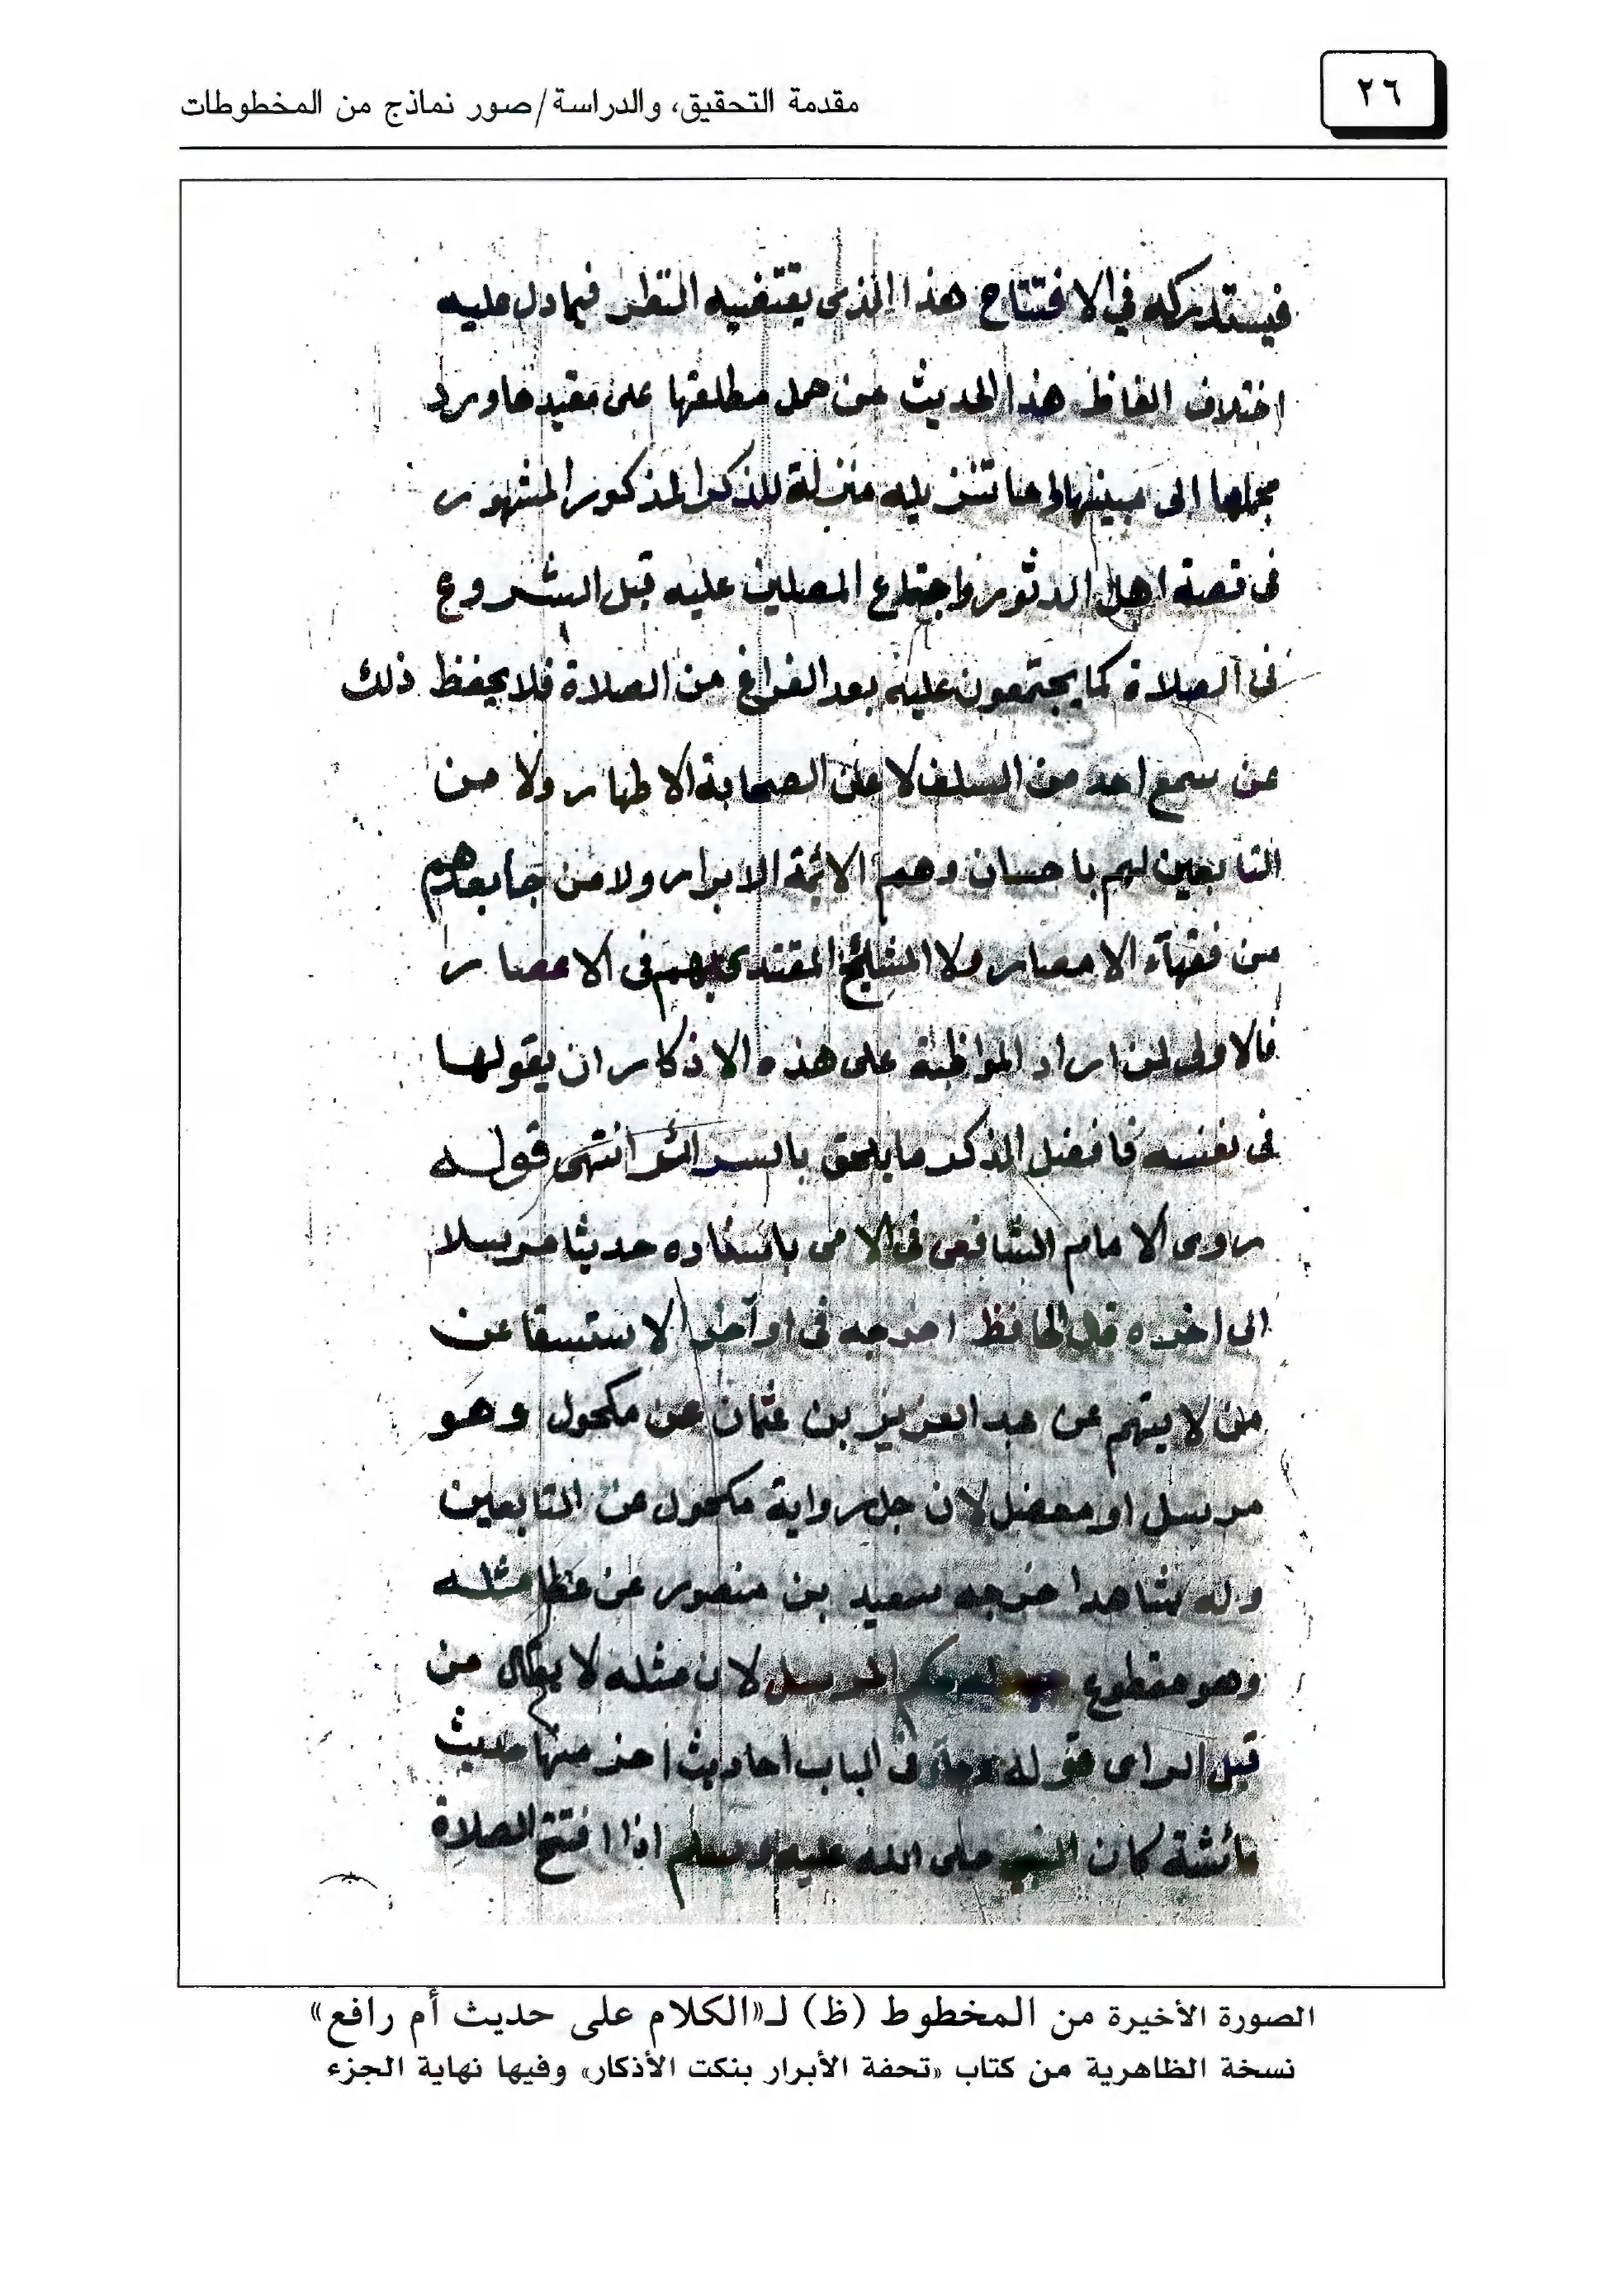 ٢٦
مقدمة التحقيق، والدراسة/صور نماذج من المخطوطات
فيستدركه في الافتتاح هذا الذى يقتضيه النظر فيما دل عليه
اختلاف الفاظ هذا الحديث من حمل مطلقها على مقيدها ورد
مجملها الى مبينها واما تنزيله منزلة للذكر المذكور المشهور
فى قصة اهل الدثور واجتماع المصلين عليه قبل الشروع
فى الصلاة كما يجتمعون عليه بعد الفراغ من الصلاة فلا يحفظ ذلك
عن سمع احد من السلف لا عن الصحابة الاطهار ولا من
التابعين لهم باحسان وهم الائمة الابرار ولا من جا بعدهم
من فقهآء الامصار ولا المشايخ المقتدى بهم فى الاعصار
فالاولى لمن اراد المواظبة على هذه الاذكار ان يقولها
فى نفسه فافضل الذكر ما يلحق بالسرائر انتهى قوله
روى الامام الشافعى فى الام باسناده حديثا مرسلا
الى اخره قال الحافظ اخرجه فى اواخر الاستسقا عن
من لا يتهم عن عبد العزيز بن عثمان عن مكحول وهو
مرسل او معضل لان جل رواية مكحول عن التابعين
وله شاهد اخرجه سعيد بن منصور عن عطا مثله
وهو مقطوع حكم المرسل لان مثله لا يقال من
قبل الراى قوله وجآ فى الباب احاديث اخر منها حديث
عائشة كان النبي صلى الله عليه وسلم اذا افتتح الصلاة
الصورة الأخيرة من المخطوط (ظ) لـ«الكلام على حديث أم رافع»
نسخة الظاهرية من كتاب «تحفة الأبرار بنكت الأذكار» وفيها نهاية الجزء